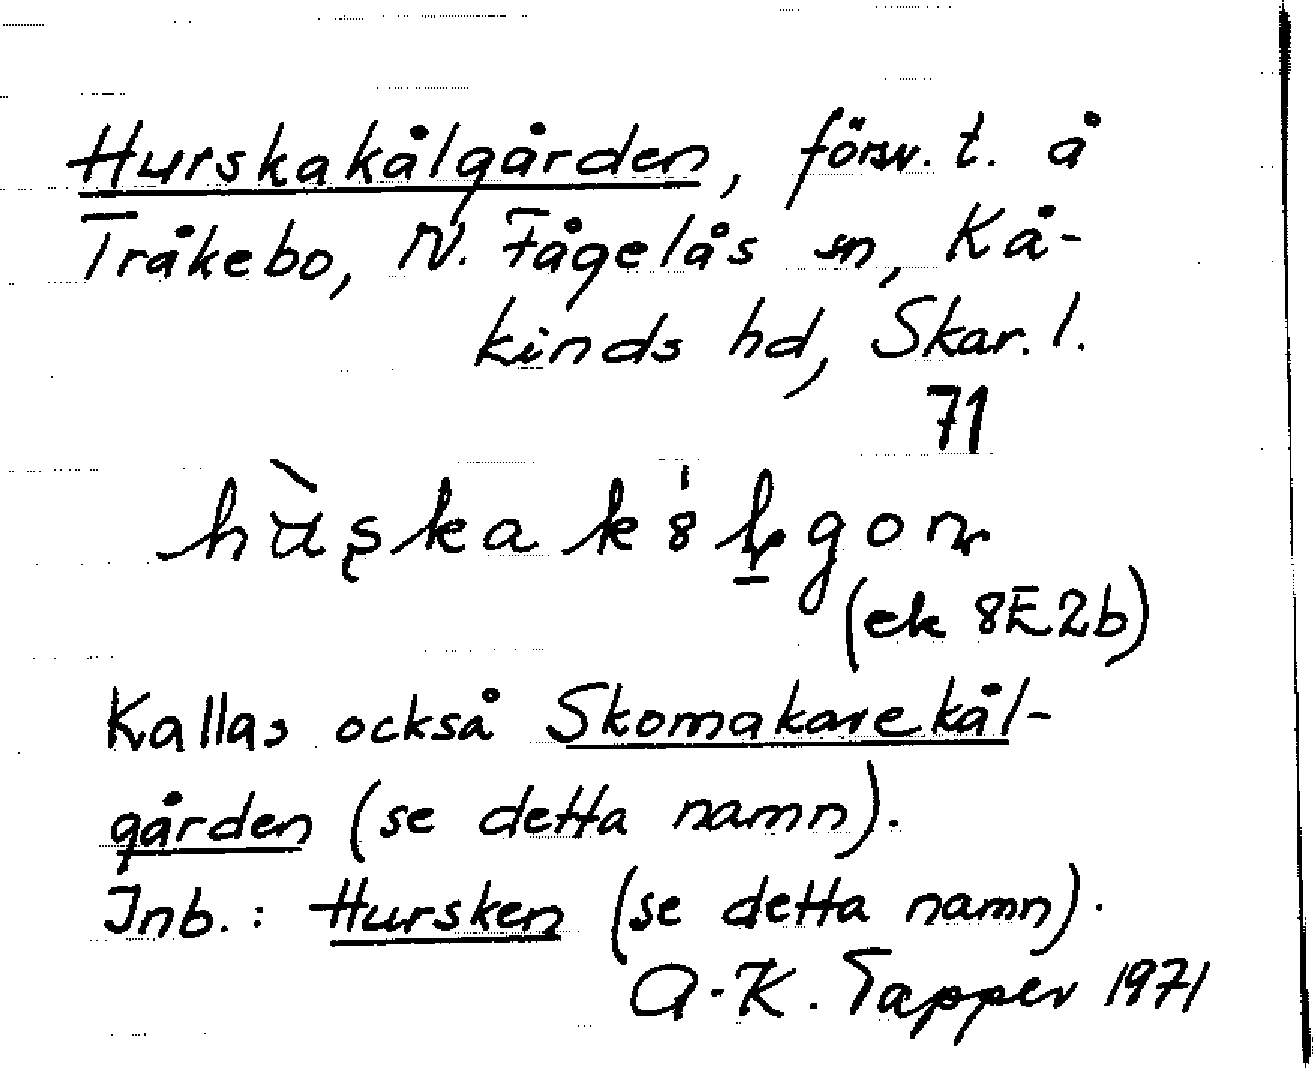 Hurskakålgården, försv. t. å
Tråkebo, N. Fågelås sn, Kå-
kinds hd, Skar. l.
71
(ek 8E2b)
Kallas också Skomakarekål-
gården (se detta namn).
Inb.: Hursken (se detta namn).
A-K. Tapper 1971